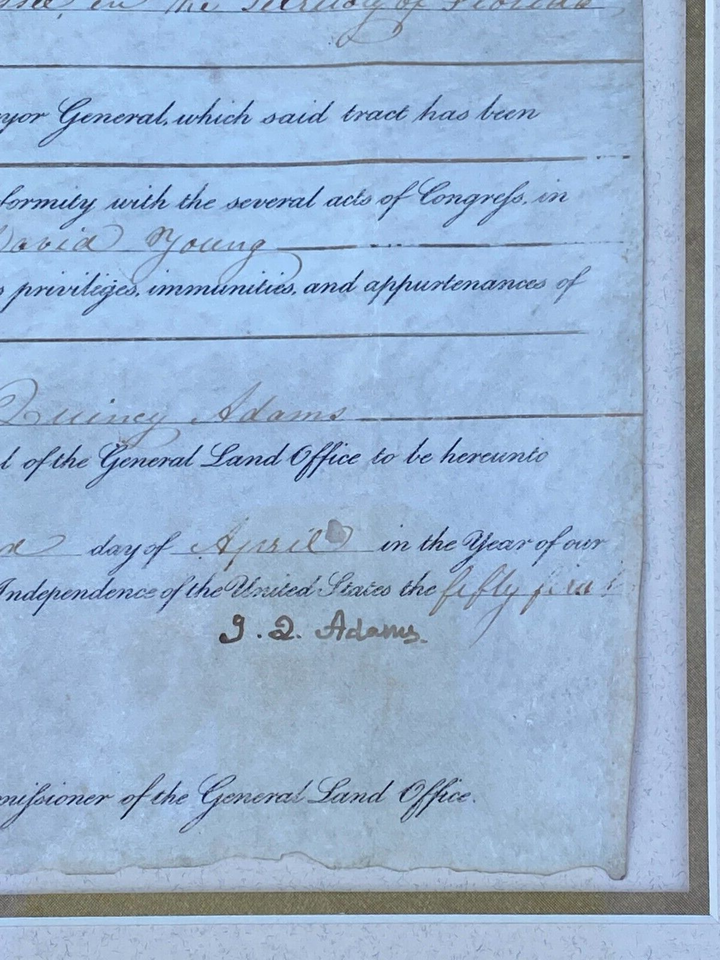 in the Territory of Florida
yor General, which said tract has been
formity with the several acts of Congreſs, in
David Young
s privileges, immunities, and appurtenances of
Quincy Adams
l of the General Land Office to be hereunto
day of April in the Year of our
Independence of the United States the fifty first
J. Q. Adams.
miſsioner of the General Land Office.